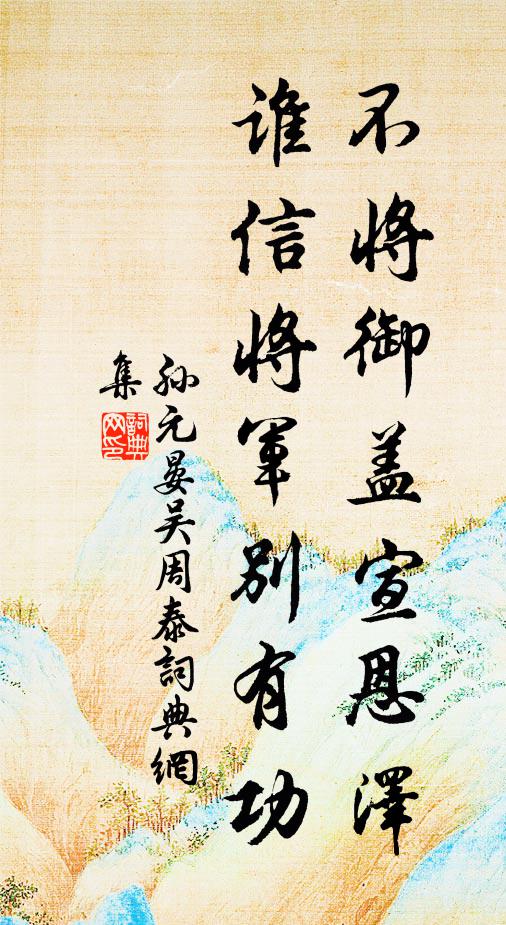 不将御盖宣恩澤
谁信将军别有功
孙元晏吴周泰詞典網
集
詞典
网印